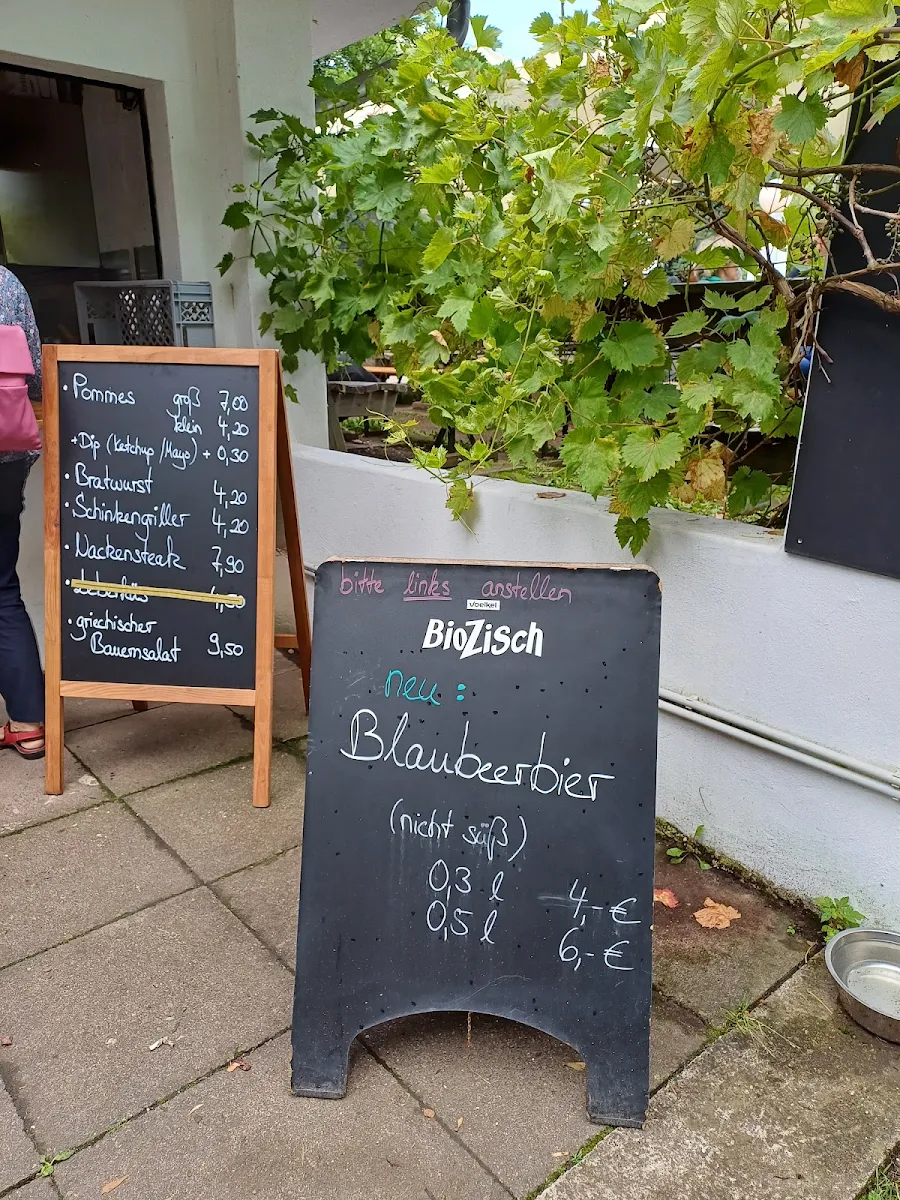 • Pommes groß 7,00
klein 4,20
+ Dip (Ketchup/Mayo) + 0,30
• Bratwurst 4,20
• Schinkengriller 4,20
• Nackensteak 7,90
• griechischer
Bauernsalat 9,50
bitte links anstellen
Voelkel
BioZisch
neu:
Blaubeerbier
(nicht süß)
0,3 l 4,- €
0,5 l 6,- €